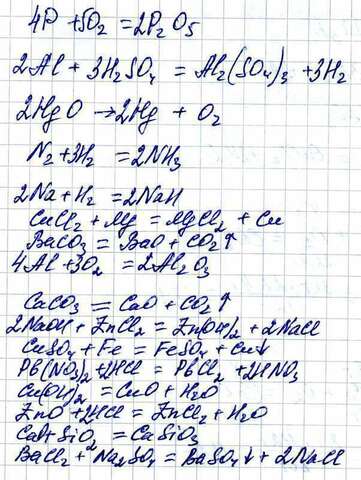 4P + 5O₂ = 2P₂O₅
2Al + 3H₂SO₄ = Al₂(SO₄)₃ + 3H₂
2HgO → 2Hg + O₂
N₂ + 3H₂ = 2NH₃
2Na + H₂ = 2NaH
CuCl₂ + Mg = MgCl₂ + Cu
BaCO₃ = BaO + CO₂↑
4Al + 3O₂ = 2Al₂O₃
CaCO₃ = CaO + CO₂↑
2NaOH + ZnCl₂ = Zn(OH)₂ + 2NaCl
CuSO₄ + Fe = FeSO₄ + Cu↓
Pb(NO₃)₂ + 2HCl = PbCl₂ + 2HNO₃
Cu(OH)₂ = CuO + H₂O
ZnO + 2HCl = ZnCl₂ + H₂O
CaO + SiO₂ = CaSiO₃
BaCl₂ + Na₂SO₄ = BaSO₄↓ + 2NaCl